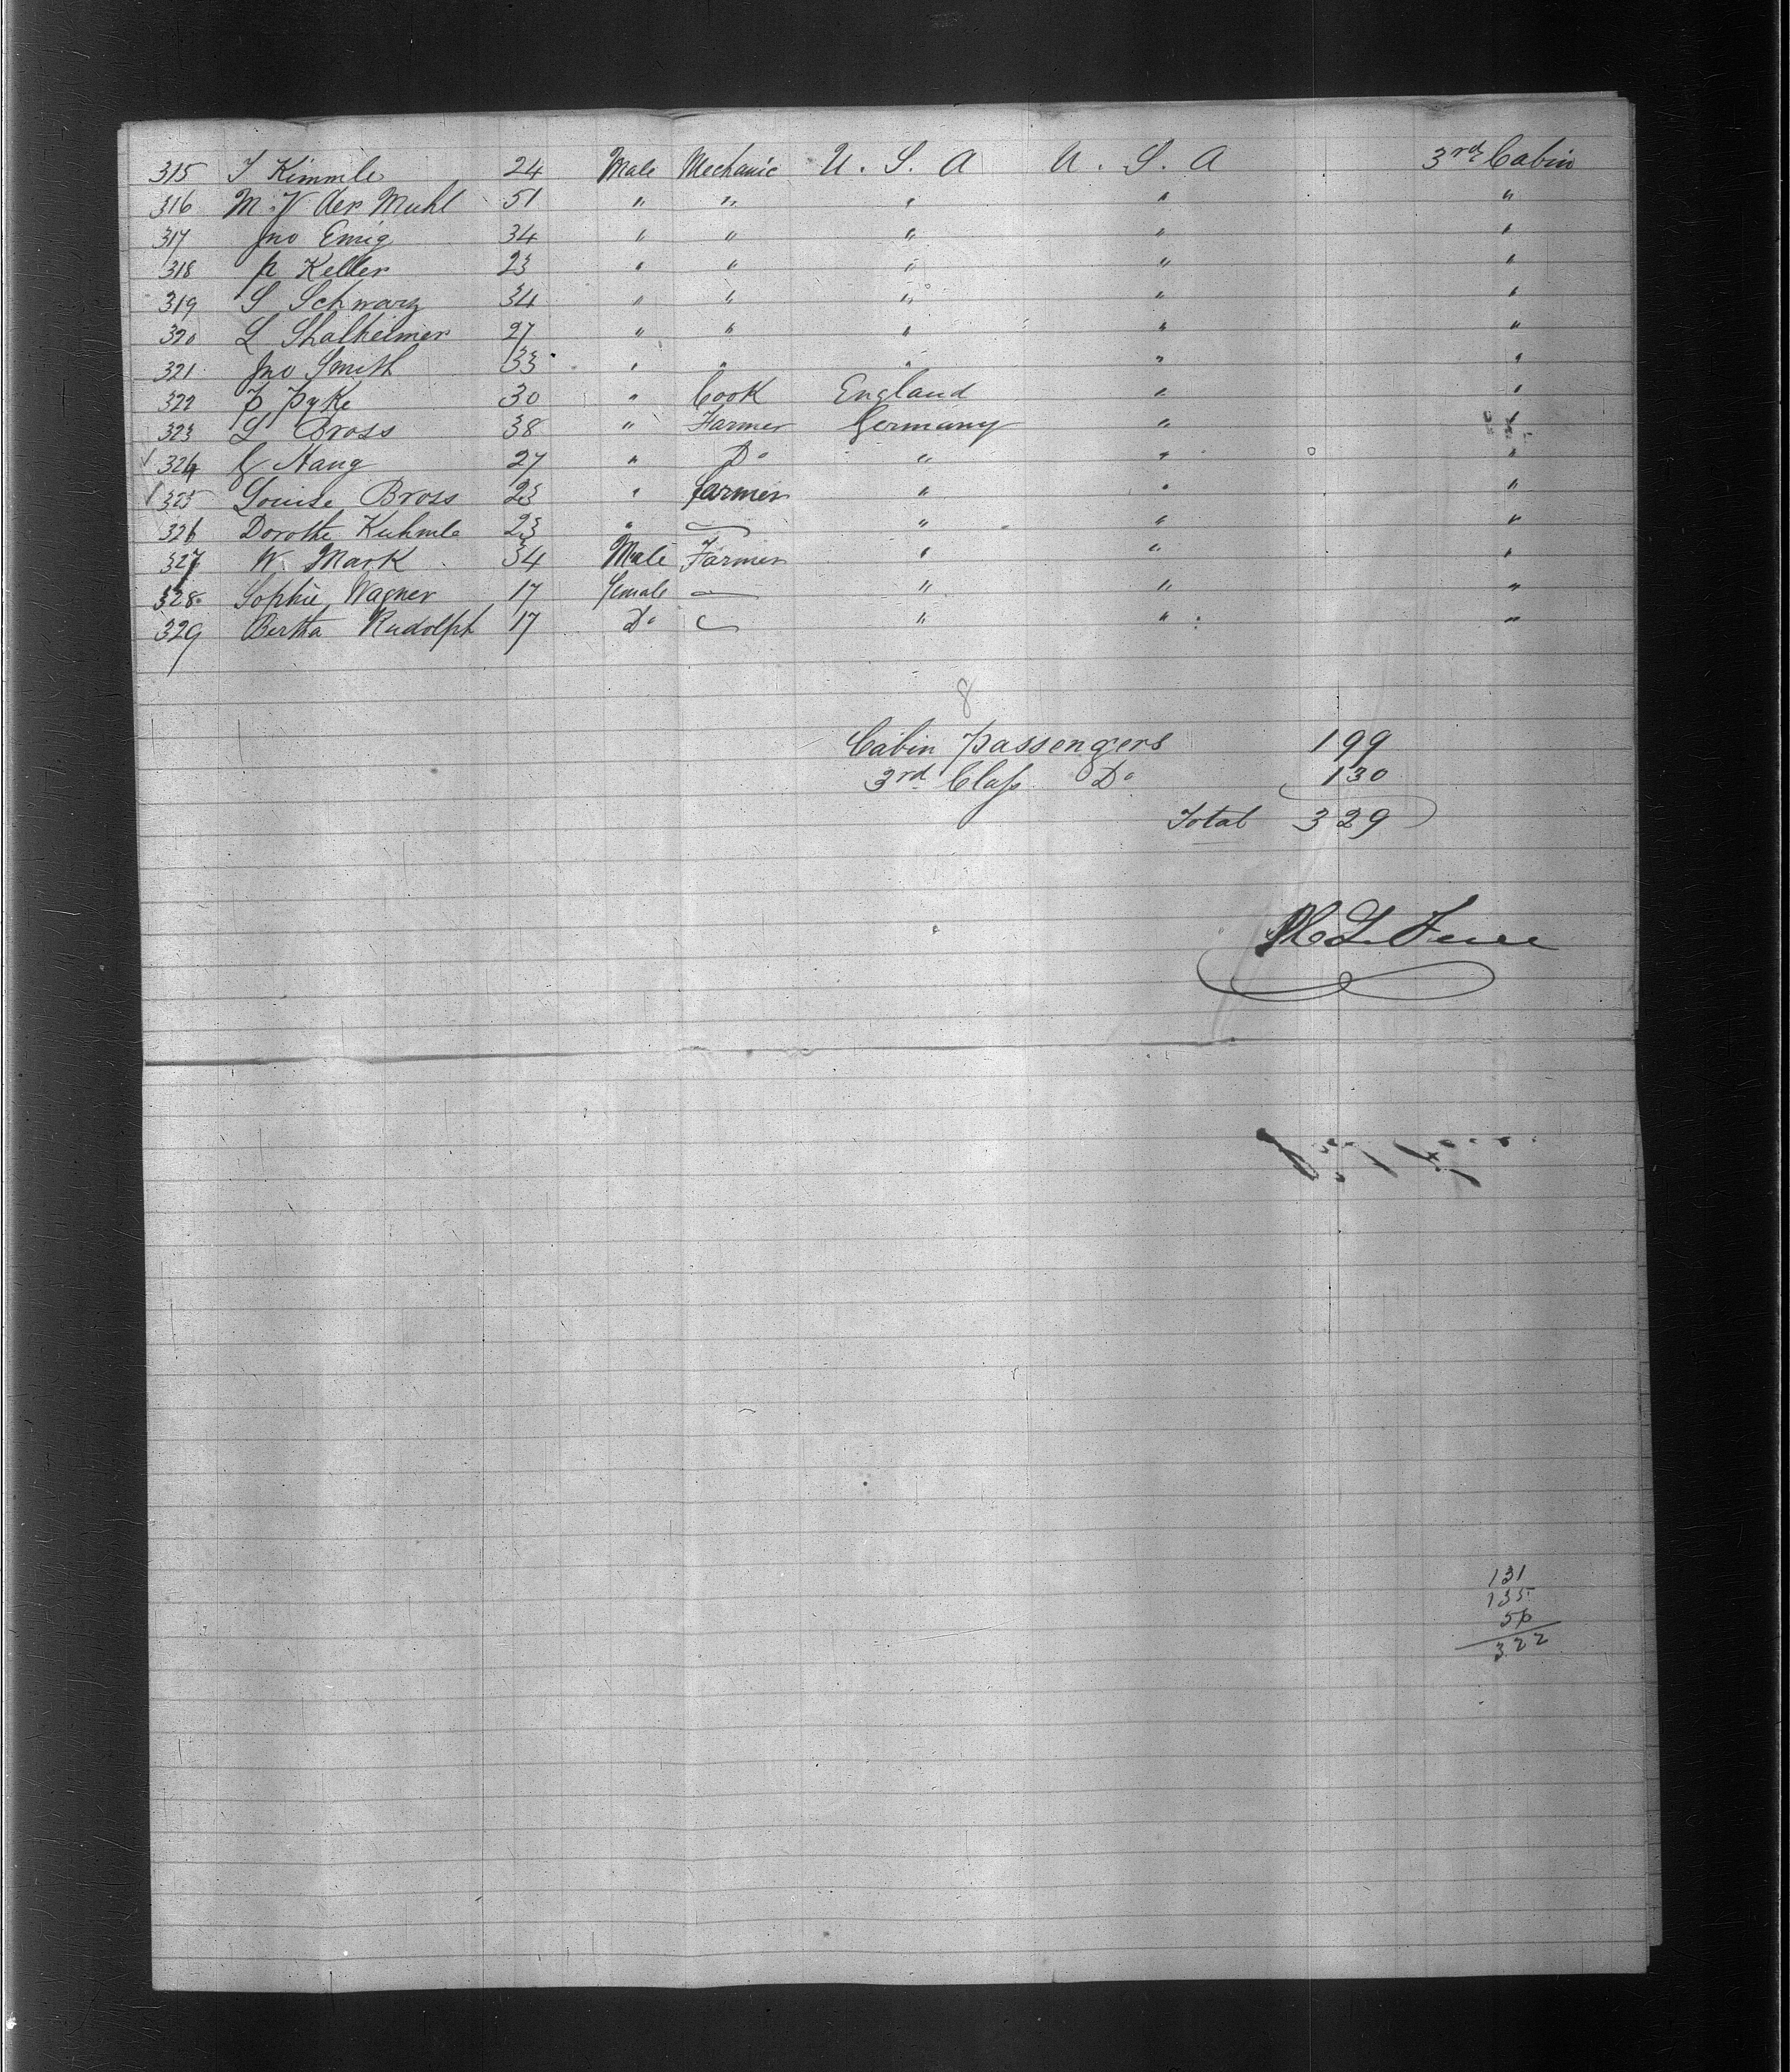 315 J Kimmle 24 Male Mechanic U. S. A U. S. A 3rd Cabin
316 M. V der Muhl 51 " " " " "
317 Jno Emig 34 " " " " "
318 P Keller 23 " " " " "
319 S Schwarz 34 " " " " "
320 L Thalheimer 27 " " " " "
321 Jno Smith 33 " " " " "
322 P Pyke 30 " Cook England " "
323 L Bross 38 " Farmer Germany " "
324 G Haug 27 " Do " " "
325 Louise Bross 23 " farmer " " "
326 Dorothe Kuhmle 23 " — " " "
327 W. Mark 34 Male Farmer " " "
328 Sophie Wagner 17 female — " " "
329 Bertha Rudolph 17 Do — " " "
8
Cabin passengers 199
3rd Class Do 130
Total 329
131
135
56
322